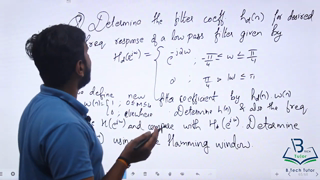 Determine the filter coeff hd(n) for desired
freq. response of a low pass filter given by
Hd(e^jω) = { e^-j2ω ; -π/4 ≤ ω ≤ π/4
0 ; π/4 < |ω| ≤ π
define new filter coefficient by hd(n). ω(n)
ω(n) = { 1 ; 0≤n≤4
0 ; elsewhere Determine h(n) & also the freq
H(e^jω) and compare with Hd(e^jω) Determine
using the Hamming window
B
B Tech Tutor